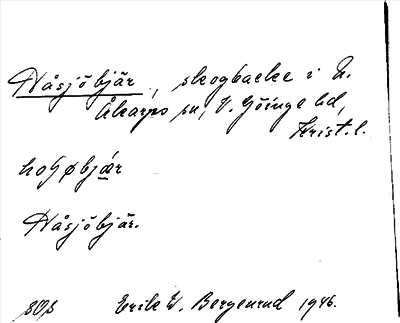 Håsjöbjär, skogbacke i N.
Åkarps sn, V. Göinge hd,
Krist. l.
Håsjöbjär.
SOS Erik W. Bergenrud 1946.